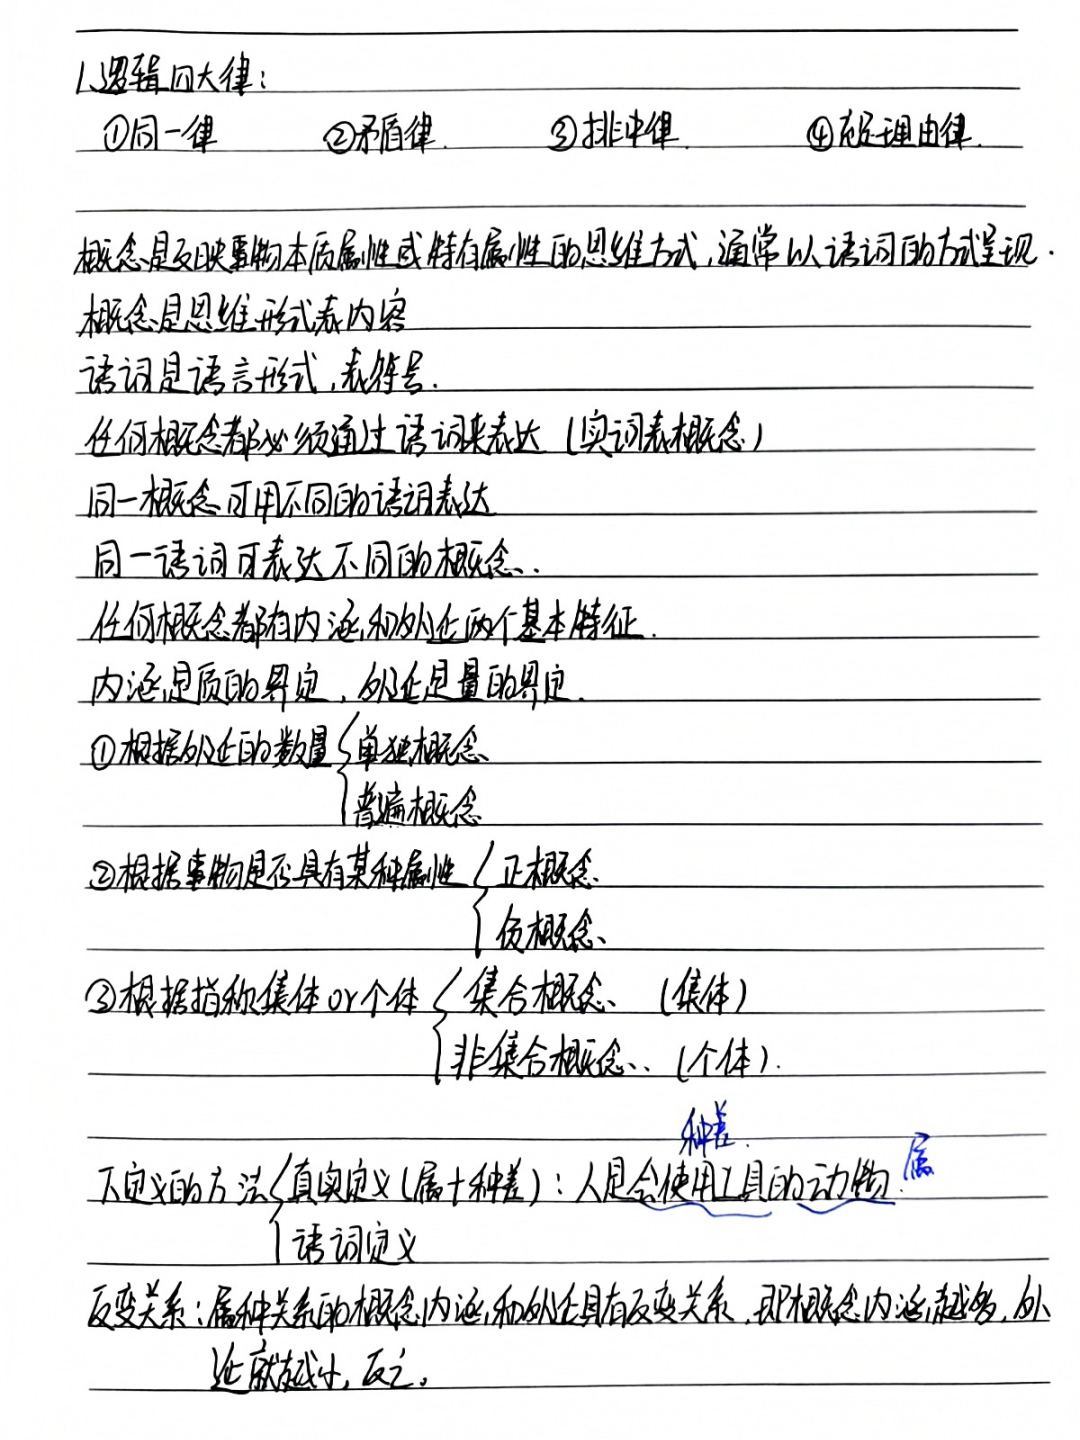 1、逻辑四大律：
①同一律 ②矛盾律. ③排中律. ④充足理由律.
概念是反映事物本质属性或特有属性的思维方式,通常以语词的方式呈现.
概念是思维形式表内容
语词是语言形式,表符号.
任何概念都必须通过语词来表达 (实词表概念)
同一概念可用不同的语词表达
同一语词可表达不同的概念.
任何概念都有内涵和外延两个基本特征.
内涵是质的界定,外延是量的界定.
①根据外延的数量 { 单独概念
普遍概念
②根据事物是否具有某种属性 { 正概念
负概念
③根据指称集体or个体 { 集合概念 (集体)
非集合概念. (个体).
种差.
下定义的方法 { 真实定义(属+种差)：人是会使用工具的动物. 属
语词定义
反变关系：属种关系的概念内涵和外延具有反变关系,即概念内涵越多,外
延就越小,反之。